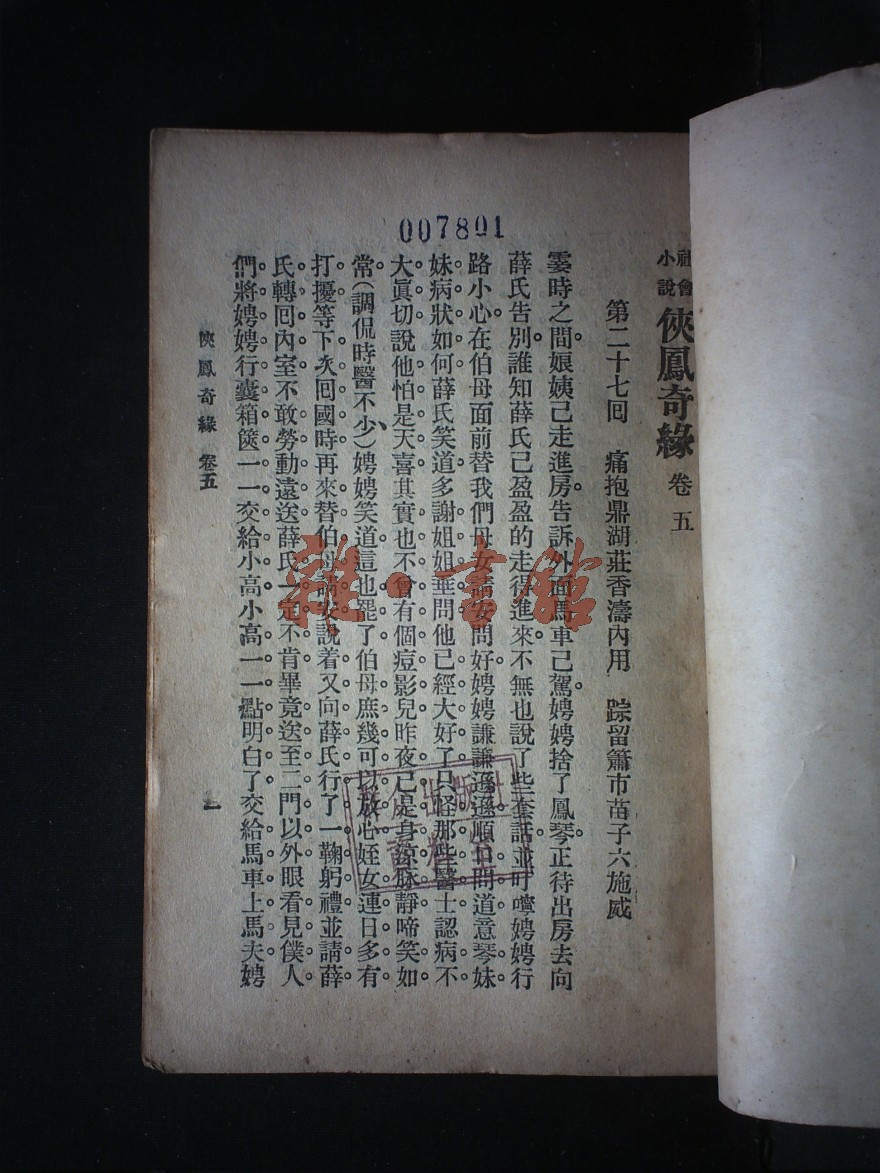 007801
社會小說 俠鳳奇緣 卷五
第二十七回 痛抱鼎湖莊香濤內用 踪留簫市苗子六施威
霎時之間娘姨已走進房告訴外面馬車已駕娉娉捨了鳳琴正待出房去向
薛氏告別誰知薛氏已盈盈的走得進來不無也說了些套話並叮嚀娉娉行
路小心在伯母面前替我們母女請安問好娉娉謙謙遜遜順口問道意琴妹
妹病狀如何薛氏笑道多謝姐姐垂問他已經大好了只怪那些醫士認病不
大眞切說他怕是天喜其實也不曾有個痘影兒昨夜已是身涼脉靜啼笑如
常(調侃時醫不少)娉娉笑道這也罷了伯母庶幾可以放心姪女連日多有
打擾等下次囘國時再來替伯母請安說着又向薛氏行了一鞠躬禮並請薛
氏轉囘內室不敢勞動遠送薛氏一定不肯畢竟送至二門以外眼看見僕人
們將娉娉行囊箱篋一一交給小高小高一一點明白了交給馬車上馬夫娉
俠鳳奇緣 卷五
一
雜·書館